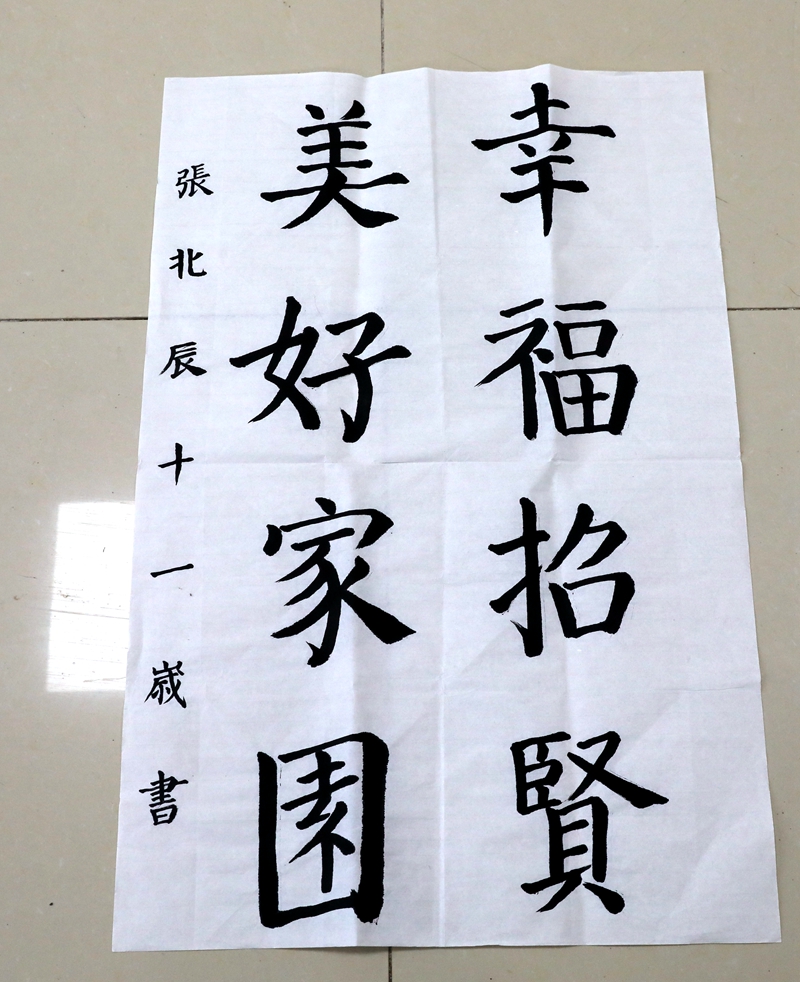 幸福招賢
美好家園
張北辰十一歳書